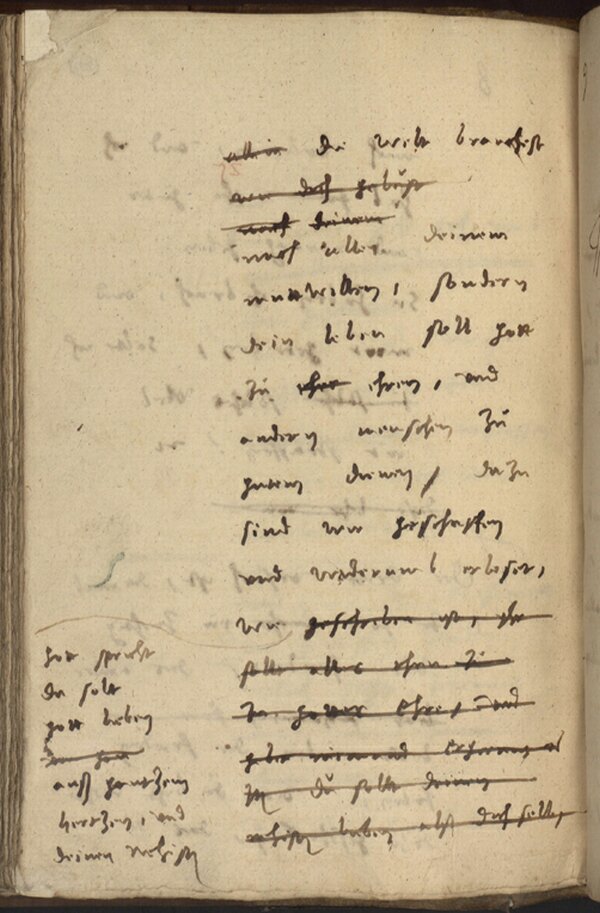 allein die welt brauchest
wie dich gelüst
nach deinem
nach allen deinem
muttwillen, sondern
dein leben soll gott
zu ehren, und
andern menschen zu
gutem dienen, dazu
sind wir geschaffen
und widerumb erloset,
wie geschriben ist, ihr
sollt alles thun zu
zu gottes Ehre, und
gebt niemand Ergernis
Du sollt deinen
nehisten lieben alß dich selb,
gott spricht
du solt
gott lieben
auß gantzem
hertzen, und
deinen nehisten